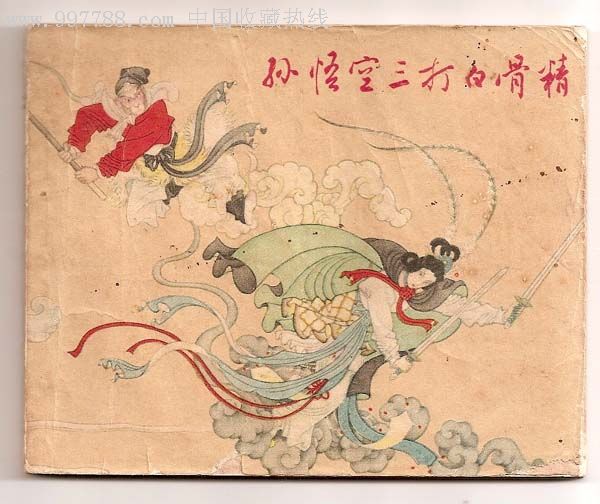 www.997788.com 中国收藏热线
孙悟空三打白骨精